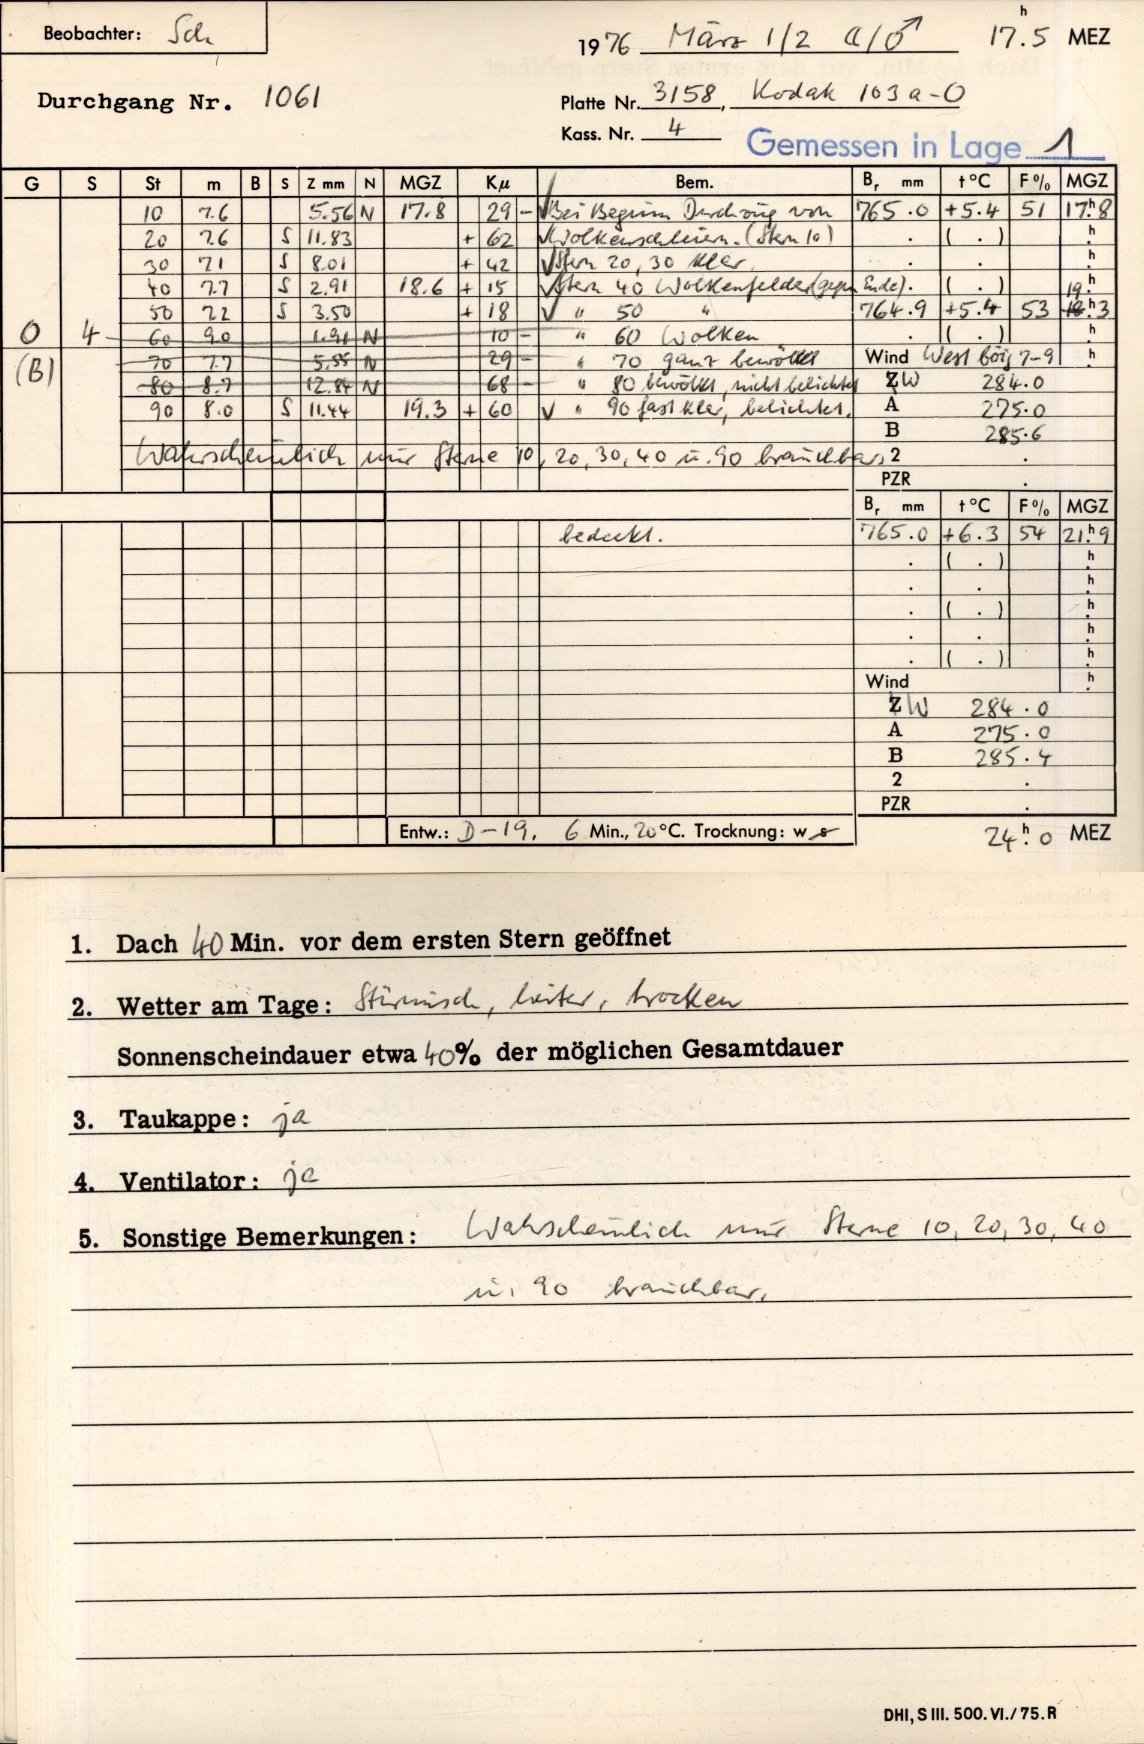 Beobachter: Sch
1976 März 1/2 ☾/♂ 17h.5 MEZ
Durchgang Nr. 1061
Platte Nr. 3158, Kodak 103a-O
Kass. Nr. 4
Gemessen in Lage 1
G S St m B S Z mm N MGZ Kμ Bem. Br mm t°C F% MGZ
10 7.6 5.56 N 17.8 29 - ✓ Bei Beginn Durchzug von 765.0 +5.4 51 17h.8
20 7.6 S 11.83 + 62 ✓ Wolkenschleiern. (Stern 10) . ( . ) h.
30 7.1 S 8.01 + 42 ✓ Stern 20, 30 klar. . . h.
40 7.7 S 2.91 18.6 + 15 ✓ Stern 40 Wolkenfelder (gegen Ende). ( . ) h.
50 7.2 S 3.50 + 18 ✓ " 50 " 764.9 +5.4 53 19h.3
O 4 60 9.0 1.91 N 10 - " 60 Wolken . ( . ) h.
(B) 70 7.7 5.55 N 29 - " 70 ganz bewölkt Wind West böig 7-9 h.
80 8.7 12.84 N 68 - " 80 bewölkt, nicht belichtet Z W 284.0
90 8.0 S 11.44 19.3 + 60 ✓ " 90 fast klar, belichtet. A 275.0
B 285.6
Wahrscheinlich nur Sterne 10, 20, 30, 40 u. 90 brauchbar. 2 .
PZR .
Br mm t°C F% MGZ
bedeckt. 765.0 +6.3 54 21h.9
. ( . ) h.
. . h.
. ( . ) h.
. . h.
. ( . ) h.
Wind h.
Z W 284.0
A 275.0
B 285.4
2 .
PZR .
Entw.: D-19, 6 Min., 20°C. Trocknung: w s
24h.0 MEZ
1. Dach 40 Min. vor dem ersten Stern geöffnet
2. Wetter am Tage: Stürmisch, heiter, trocken
Sonnenscheindauer etwa 40% der möglichen Gesamtdauer
3. Taukappe: ja
4. Ventilator: ja
5. Sonstige Bemerkungen: Wahrscheinlich nur Sterne 10, 20, 30, 40
u. 90 brauchbar.
DHI, S III. 500. VI./75. R